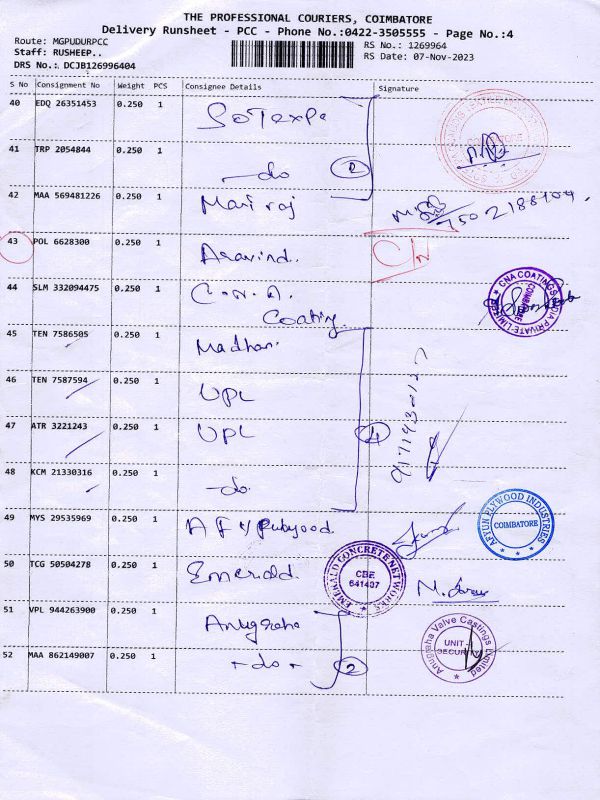 THE PROFESSIONAL COURIERS, COIMBATORE
Delivery Runsheet - PCC - Phone No.:0422-3505555 - Page No.:4
Route: MGPUDURPCC
RS No.: 1269964
Staff: RUSHEEP..
RS Date: 07-Nov-2023
DRS No.: DCJB126996404
S No Consignment No Weight PCS Consignee Details Signature
40 EDQ 26351453 0.250 1
41 TRP 2054844 0.250 1 - do 2
42 MAA 569481226 0.250 1 Mariraj
43 POL 6628300 0.250 1 Aravind.
44 SLM 332094475 0.250 1 C.N.A. Coating CNA COATINGS INDIA PRIVATE LIMITED COIMBATORE
45 TEN 7586505 0.250 1 Madhan
46 TEN 7587594 0.250 1 UPL
47 ATR 3221243 0.250 1 UPL 4
48 KCM 21330316 0.250 1 -do-
49 MYS 29535969 0.250 1 COIMBATORE
50 TCG 50504278 0.250 1 Emerald. EMERALD CONCRETE NETWORKS CBE 641407
51 VPL 944263900 0.250 1 Anugraha Anugraha Valve Castings Limited UNIT - SECURITY
52 MAA 862149007 0.250 1 - do - 2